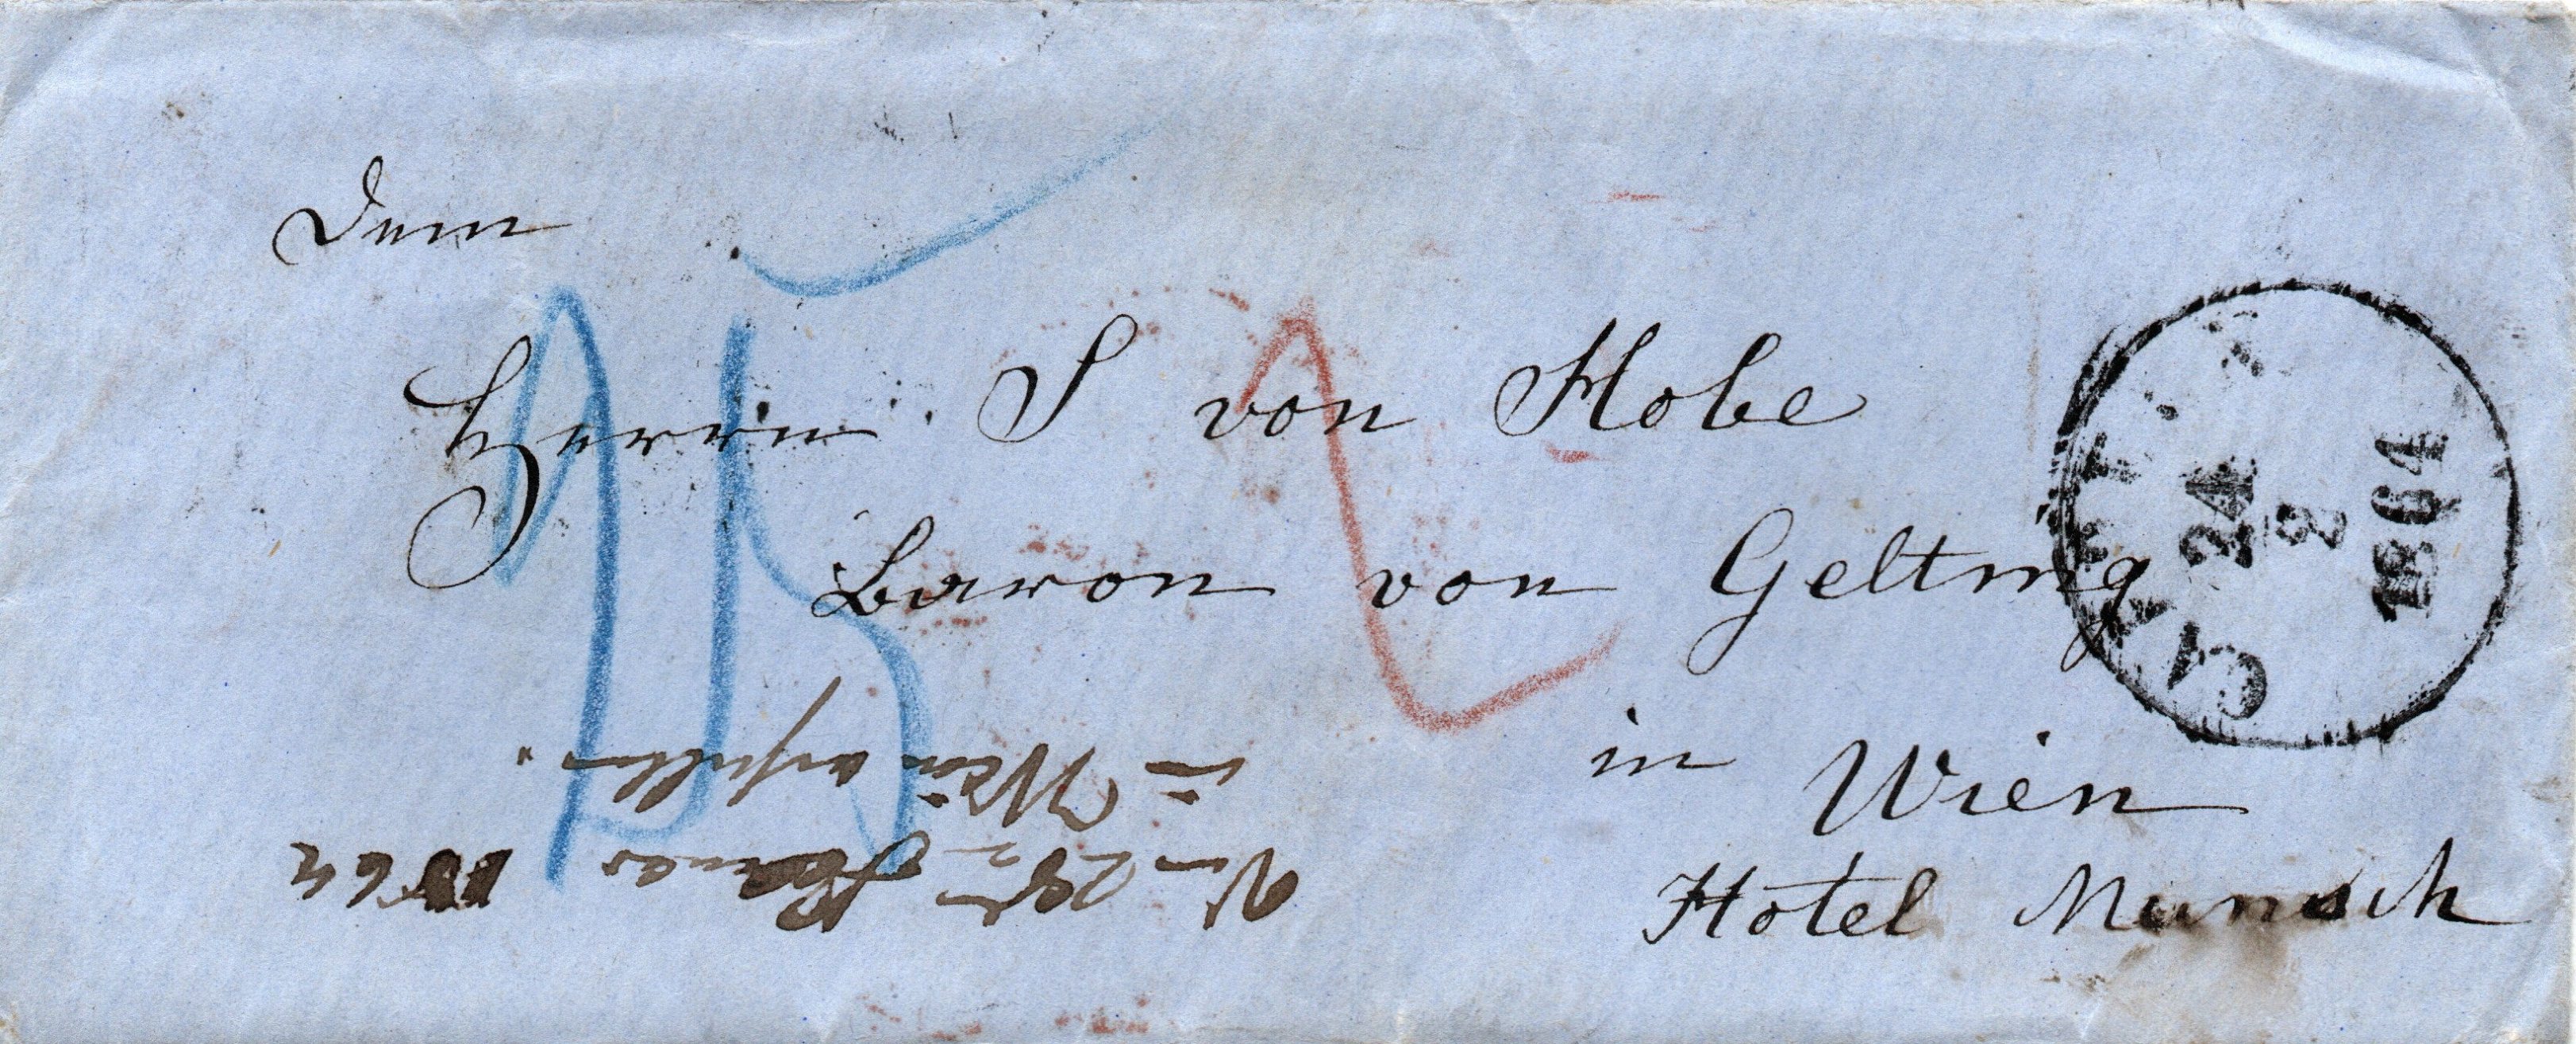 Dem
Herrn S von Hobe
Baron von Gelting
in Wien
Hotel Munsch
24
2
1864
15
2
in Wien erhalten.
1864